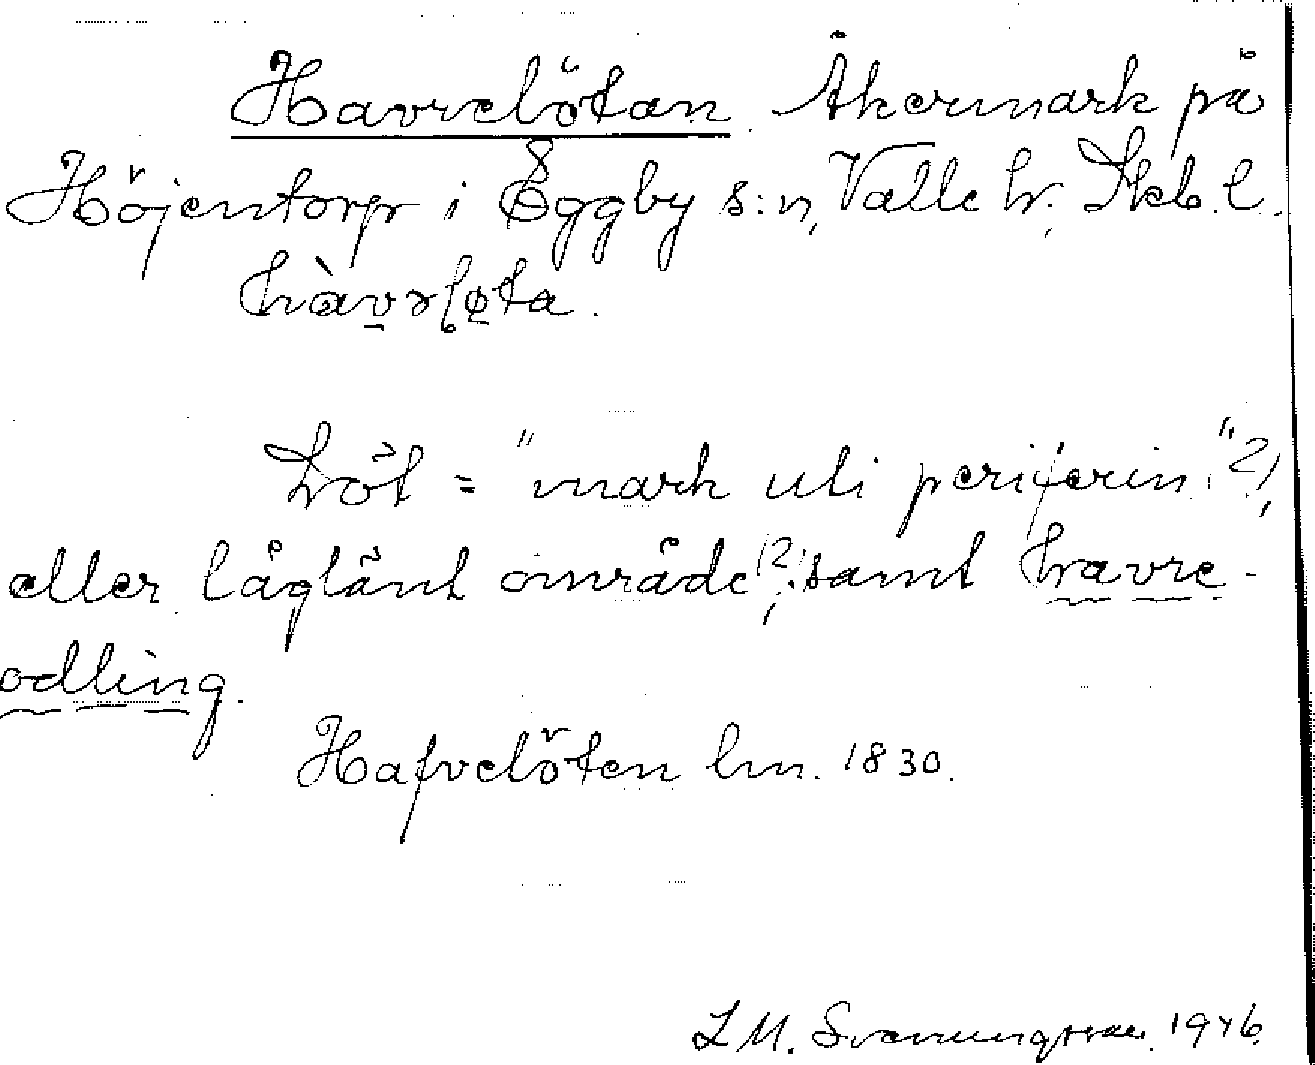 Havrelötan. Åkermark på
Höjentorp i Eggby s:n, Valle hr. Skb. l.
hàvrlǫta.
Löt = "mark uti periferin" (?),
eller låglänt område (?), samt havre-
odling.
Hafvelöten lm. 1830.
L M. Svanungsson 1946.